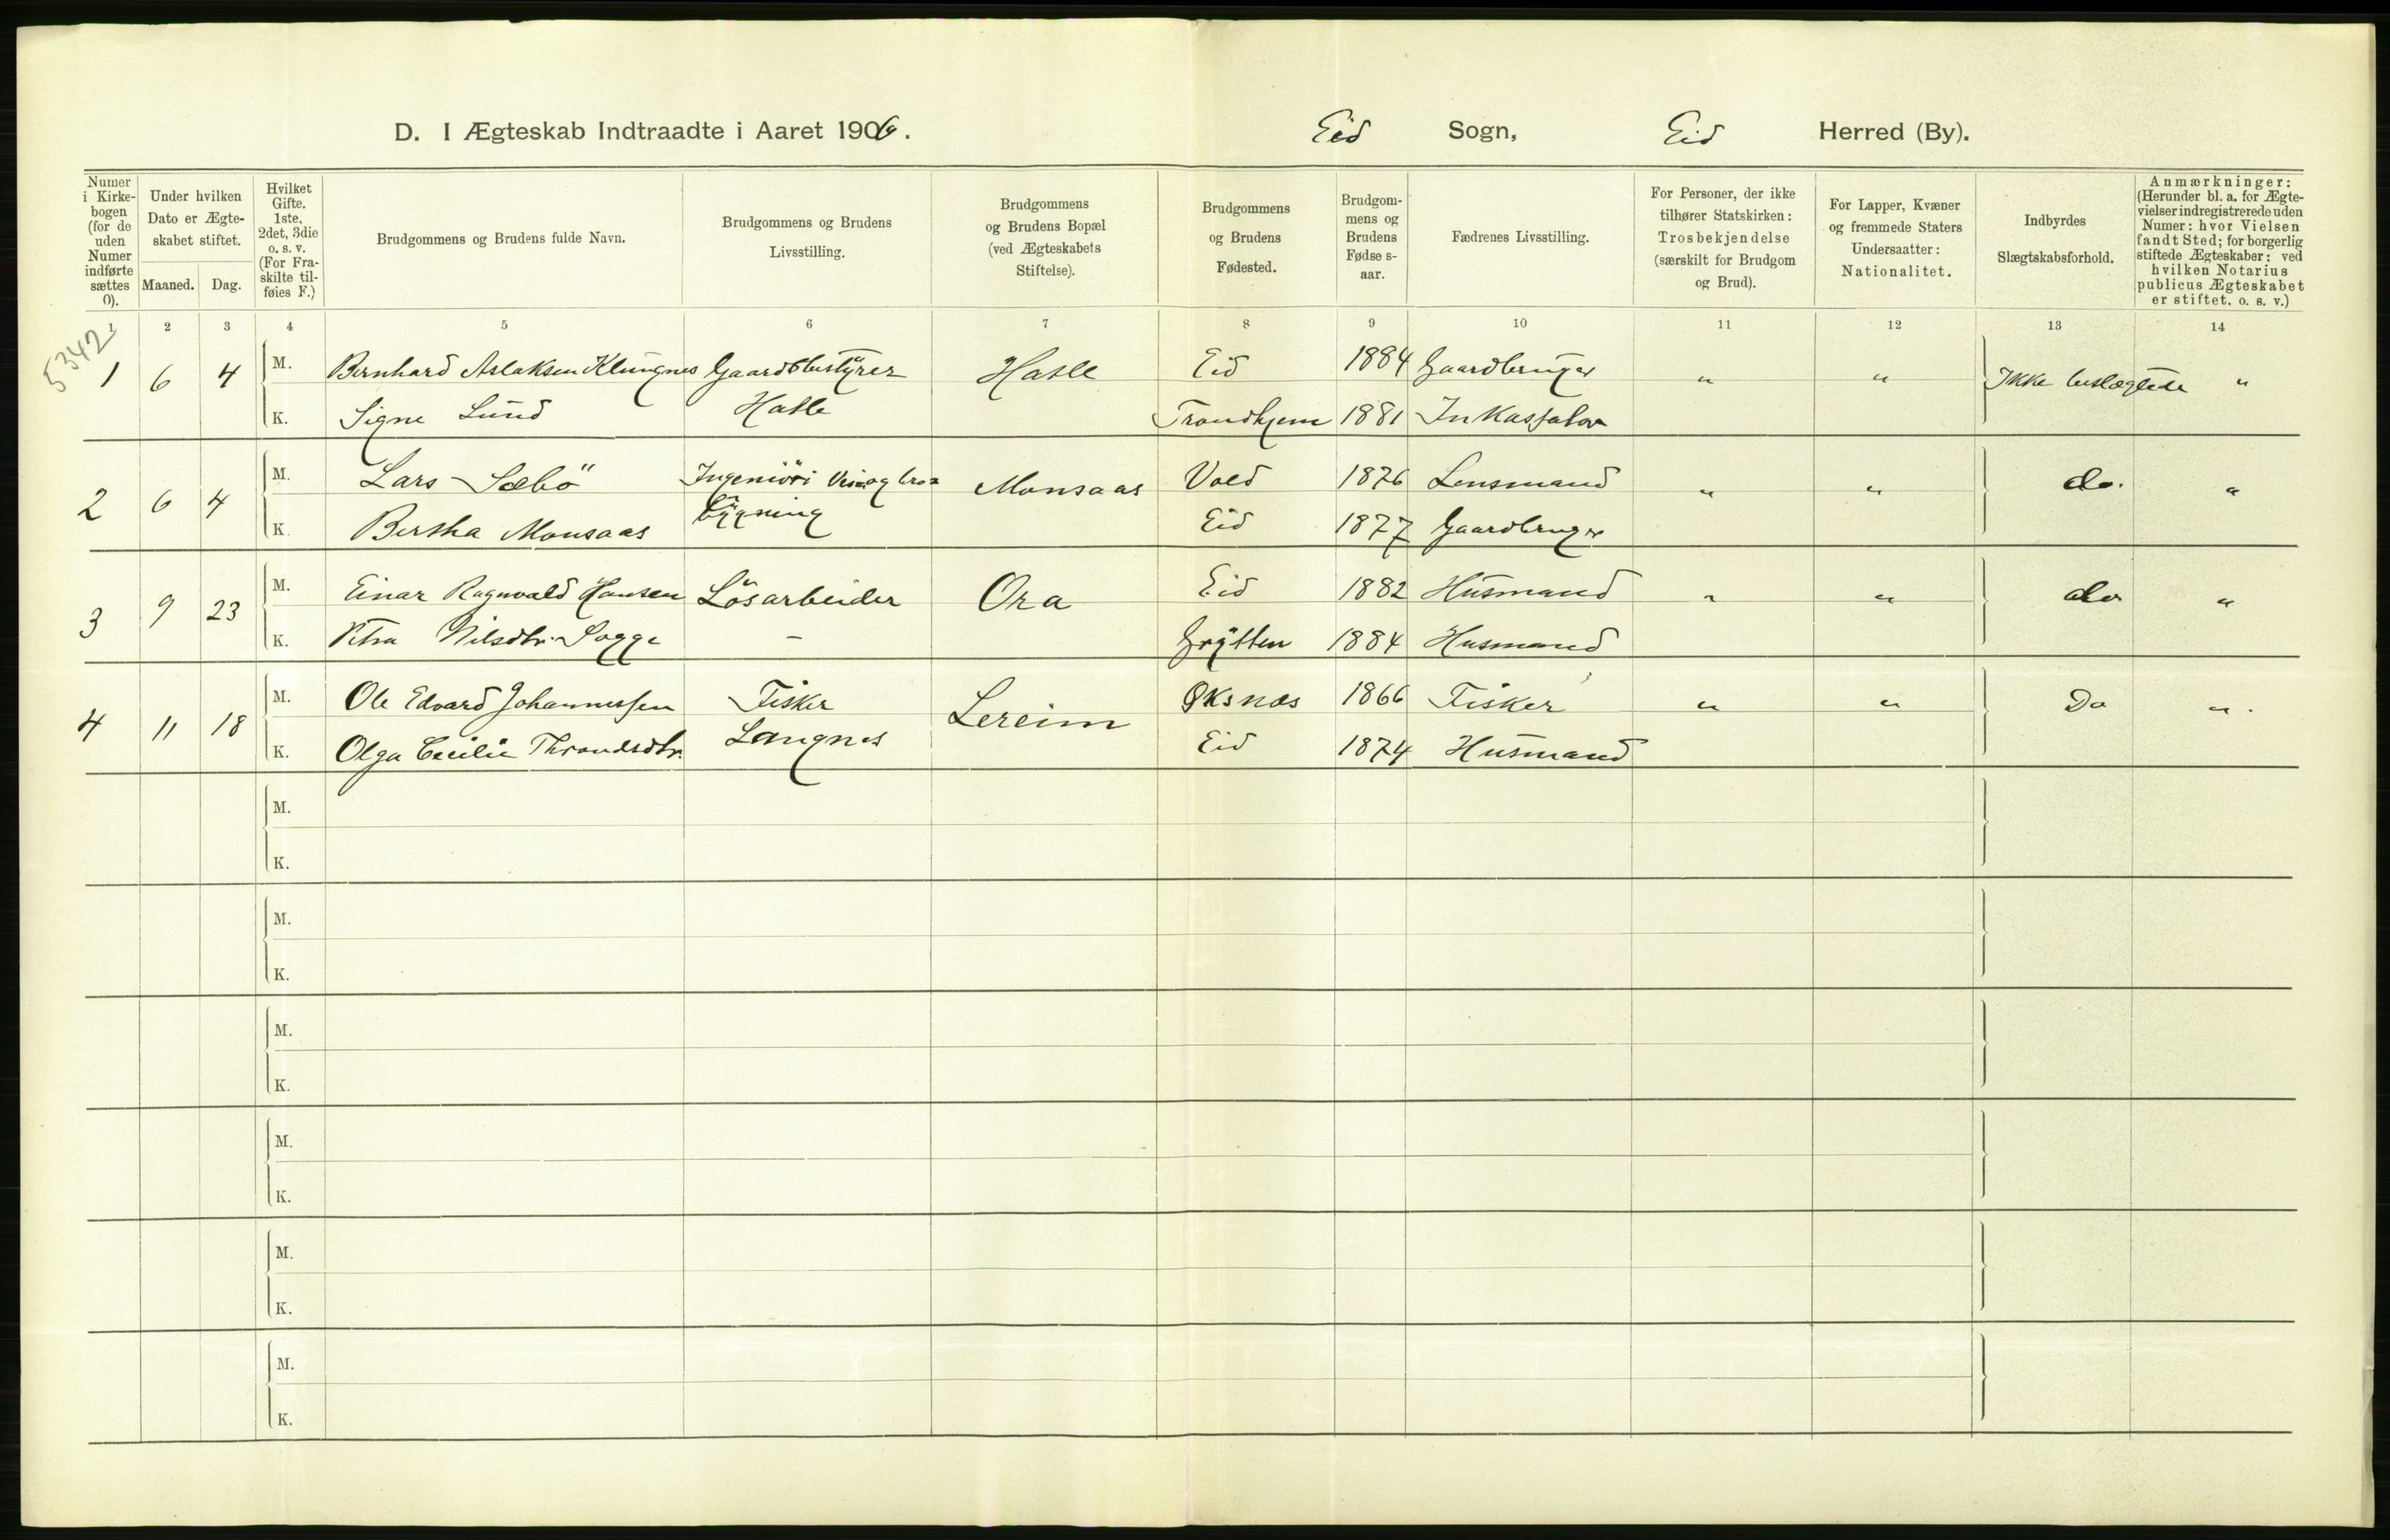 D. I Ægteskab Indtraadte i Aaret 1906. Eid Sogn, Eid Herred (By).
Numer i Kirkebogen (for de uden Numer indførte sættes 0).
Under hvilken Dato er Ægteskabet stiftet.
Maaned. Dag.
Hvilket Gifte. 1ste, 2det, 3die o. s. v. (For Fraskilte tilføies F.)
Brudgommens og Brudens fulde Navn.
Brudgommens og Brudens Livsstilling.
Brudgommens og Brudens Bopæl (ved Ægteskabets Stiftelse).
Brudgommens og Brudens Fødested.
Brudgommens og Brudens Fødse s-aar.
Fædrenes Livsstilling.
For Personer, der ikke tilhører Statskirken: Trosbekjendelse (særskilt for Brudgom og Brud).
For Lapper, Kvæner og fremmede Staters Undersaatter: Nationalitet.
Indbyrdes Slægtskabsforhold.
Anmærkninger: (Herunder bl. a. for Ægtevielser indregistrerede uden Numer: hvor Vielsen fandt Sted; for borgerlig stiftede Ægteskaber: ved hvilken Notarius publicus Ægteskabet er stiftet, o. s. v.)
1 2 3 4 5 6 7 8 9 10 11 12 13 14
5342
1 6 4 M. Bernhard Aslaksen Klungnes Gaardsbestÿrer Hatle Eid 1884 Gaardbruger " " Ikke beslægtede "
K. Signe Lund Hatle Trondhjem 1881 Inkassator
2 6 4 M. Lars Sæbö Ingeniör i Vei og bro= Monsaas Vold 1876 Lensmand " " do. "
K. Bertha Monsaas bÿgning Eid 1877 Gaardbruger
3 9 23 M. Einar Ragnvald Hansen Lösarbeider Ora Eid 1882 Husmand " " do "
K. Petra Nilsdtr. Sogge – Grÿtten 1884 Husmand
4 11 18 M. Ole Edvard Johannessen Fisker Lereim Øksnes 1866 Fisker " " Do " .
K. Olga Cecilie Throndsdtr. Langnes Eid 1874 Husmand
M.
K.
M.
K.
M.
K.
M.
K.
M.
K.
M.
K.